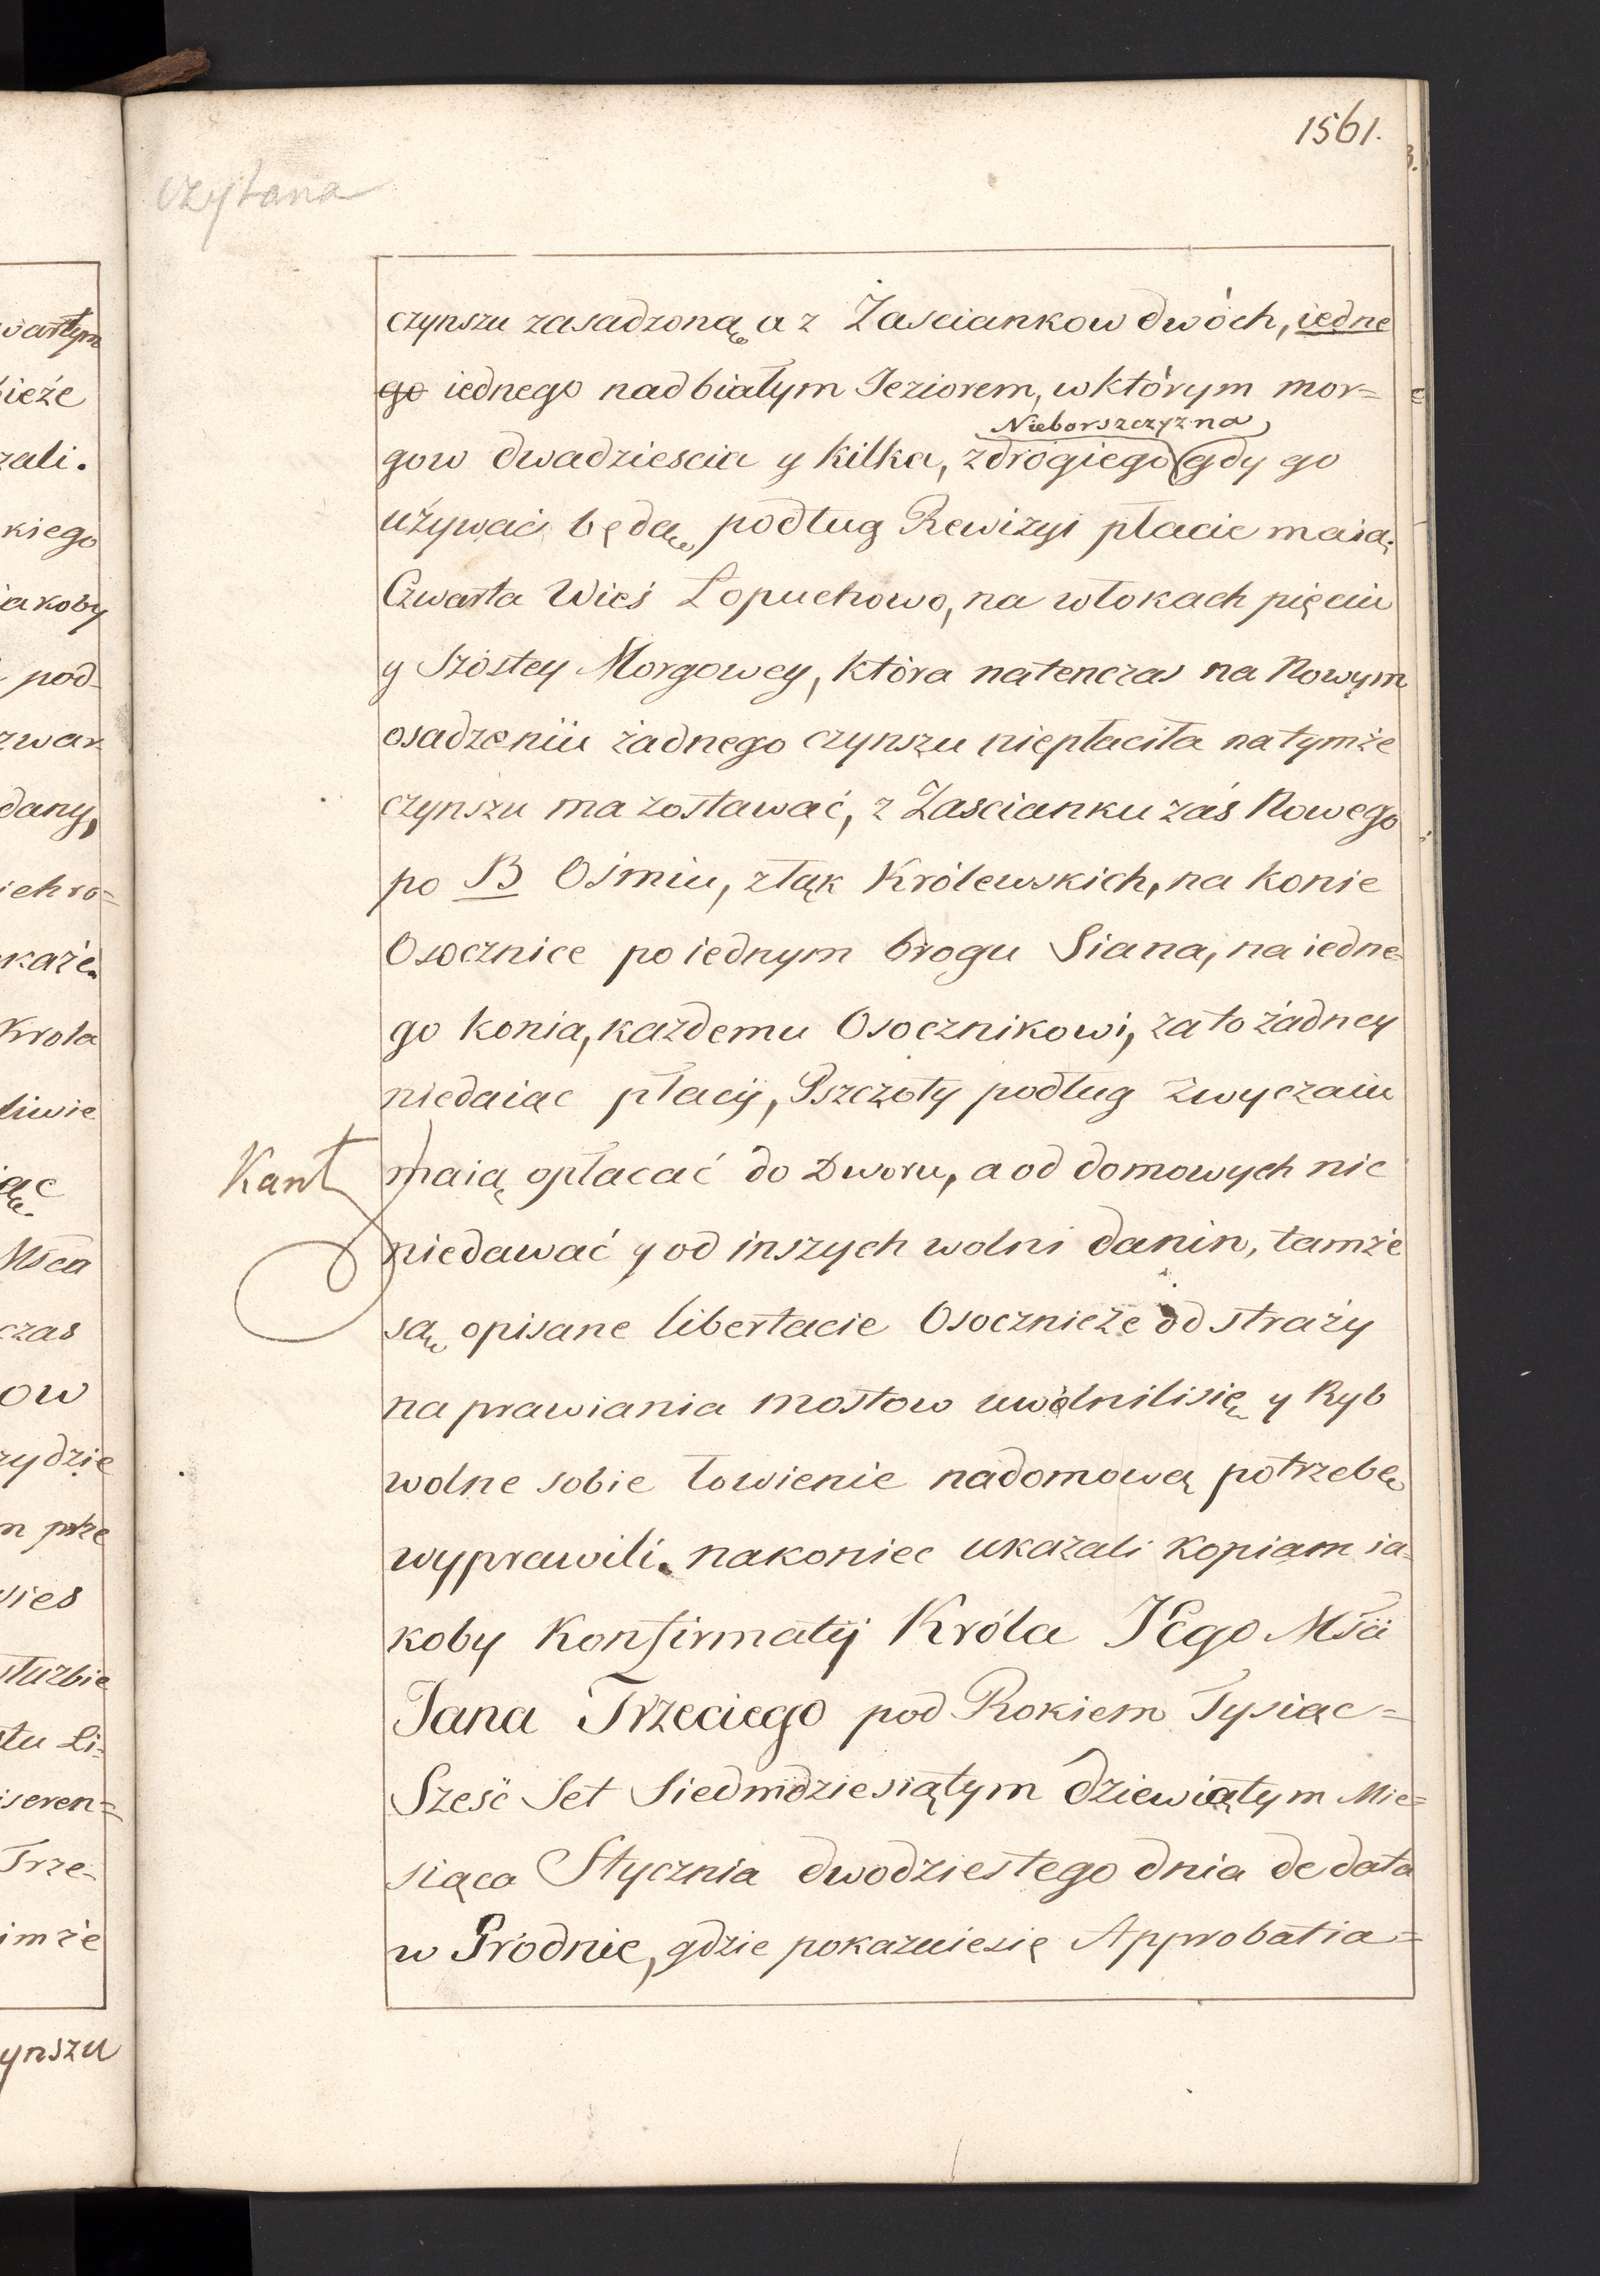 1561.
czytana
czynszu zasadzoną a z Zasciankow dwóch, iedne
go iednego nad białym Jeziorem, w którym mor=
Nieborszczyzna
gow dwadziescia y kilka, z drogiego (gdy go
używać będą, podług Rewizyi płacic maią.
Czwarta Wieś Lopuchowo, na włokach pięciu
y Szóstey Morgowey, która natenczas na Nowym
osadzeniu żadnego czynszu niepłaciła na tymże
czynszu ma zostawać, z Zascianku zaś Nowego
po B Ośmiu, z łąk Królewskich, na konie
Osocznice po iednym brogu Siana, na iedne=
go konia, kazdemu Osocznikowi, za to żadney
niedaiąc płacy, Pszczoły podług zwyczaiu
Kant
maią opłacać do Dworu, a od domowych nic
niedawać y od inszych wolni danin, tamże
są opisane libertacie Osocznieże od straży
naprawiania mostow uwolnilisię y Ryb
wolne sobie łowienie nadomową potrzebę
wyprawili. nakoniec ukazali kopiam ia=
koby Konfirmatij Króla JEgo Mści
Jana Trzeciego pod Rokiem Tysiąc=
Szesć Set Siedmdziesiątym dziewiątym Mie=
siąca Stycznia dwodziestego dnia de data
w Grodnie, gdzie pokazuiesię Approbatia=
wartym
bieże
zali.
kiego
iakoby
pod-
zwar
dany,
iehro=
każe.
Krola
liwie
iąc
Mści
czas
ow
zydzie
m prze
wies
służbie
tu Li=
iseren=
Trze=
imże
ynszu